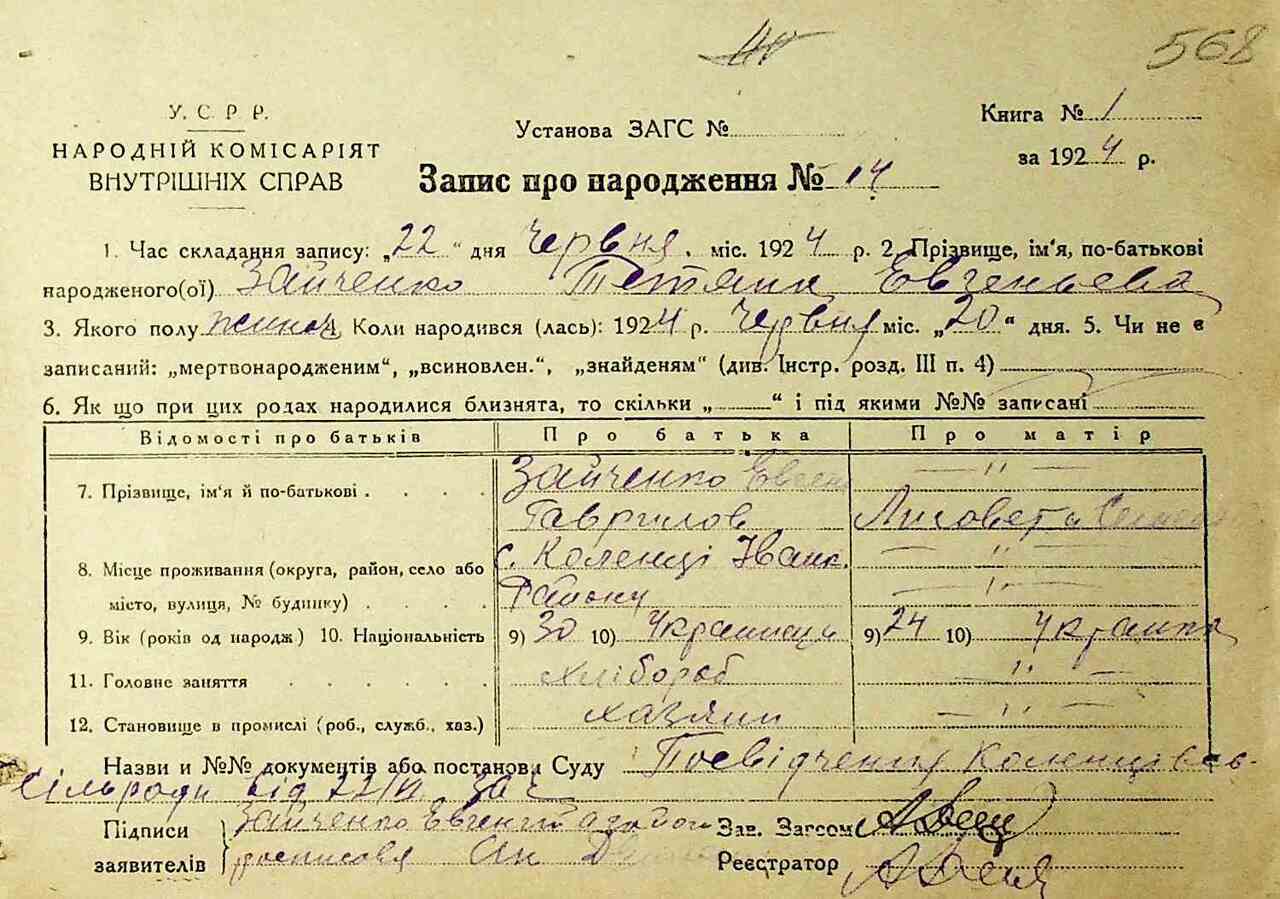 568
У. С. Р. Р.
НАРОДНІЙ КОМІСАРІЯТ
ВНУТРІШНІХ СПРАВ
Установа ЗАГС №
Книга № 1
за 1924 р.
Запис про народження № 14
1. Час складання запису: „22“ дня Червня. міс. 1924 р. 2. Прізвище, ім'я, по-батькові
народженого(ої) Зайченко Тетяни Евгеньева
3. Якого полу жіноч. Коли народився (лась): 1924 р. Червня міс. „20“ дня. 5. Чи не є
записаний: „мертвонародженим“, „всиновлен.“, „знайденям“ (див. Інстр. розд. III п. 4)
6. Як що при цих родах народилися близнята, то скільки „ “ і під якими №№ записані
Відомості про батьків Про батька Про матір
7. Прізвище, ім'я й по-батькові . . . . Зайченко Евген — " —
Гаврилов Лисовета
8. Місце проживання (округа, район, село або с. Коленці Іванк. — " —
місто, вулиця, № будинку) . . . . Району — " —
9. Вік (років од народж) 10. Національність 9) 30 10) Украинец 9) 24 10) Украинка
11. Головне заняття . . . . . . хлібороб — " —
12. Становище в промислі (роб., служб., хаз.) хазяин — " —
Назви и №№ документів або постанови Суду Посвідчення Коленцівсь-
Сільради від 22/VI
Підписи Зайченко Евгений Зав. Загсом
заявителів Реєстратор